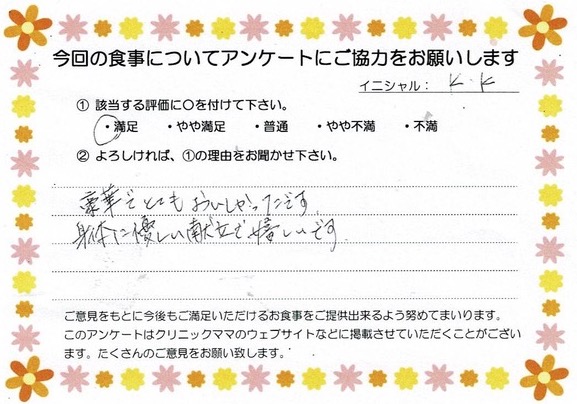 今回の食事についてアンケートにご協力をお願いします
イニシャル： K K
① 該当する評価に○を付けて下さい。
・満足 ・やや満足 ・普通 ・やや不満 ・不満
② よろしければ、①の理由をお聞かせ下さい。
豪華でとてもおいしかったです。
身体に優しい献立で嬉しいです。
ご意見をもとに今後もご満足いただけるお食事をご提供出来るよう努めてまいります。
このアンケートはクリニックママのウェブサイトなどに掲載させていただくことがござい
ます。たくさんのご意見をお願い致します。